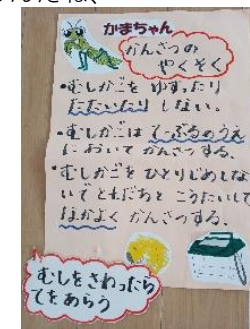 かまちゃん
かんさつの
やくそく
•むしかごを ゆすったり
たたいたり しない。
•むしかごは てーぶるのうえ
に おいて かんさつする。
•むしかごを ひとりじめしな
いで ともだちと こうたいして
なかよく かんさつする。
むしをさわったら
てをあらう